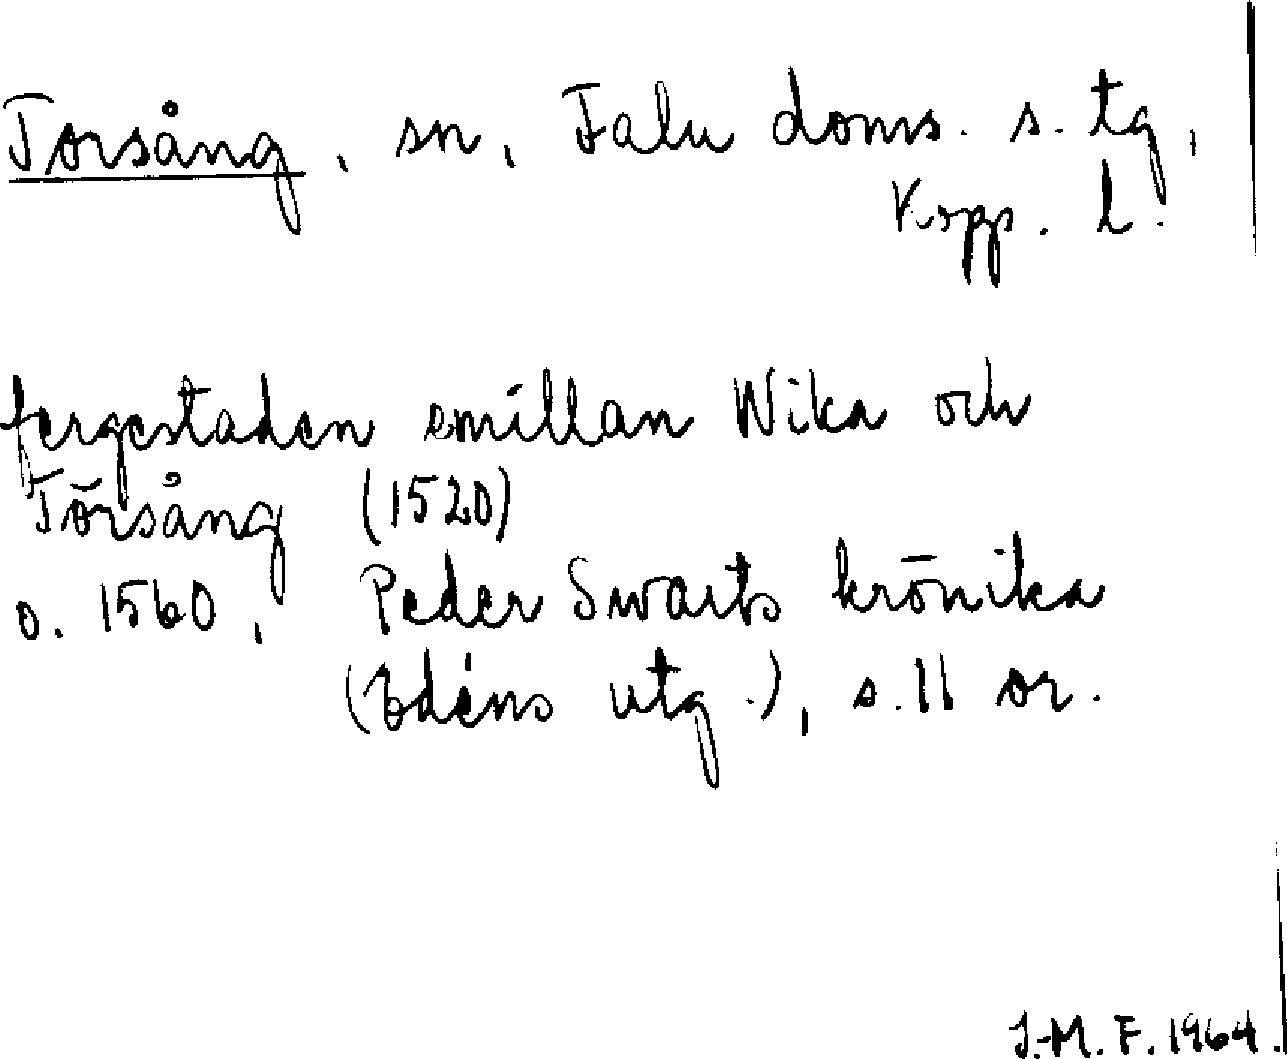 Torsång, sn, Falu doms. s. tg,
Kopp. l.
fergestaden emillan Wika och
Törsång (1520)
o. 1560, Peder Swarts krönika
(Edéns utg.), s. 11 or.
J.-M. F. 1964.